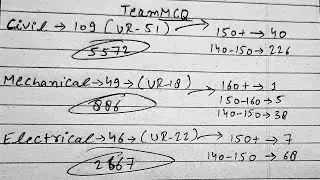 TeamMCQ
Civil → 109 (UR-51) → 150+ → 40
5572
140-150 → 226
Mechanical → 49 → (UR-18) → 160+ → 1
886
150-160 → 5
140-150 → 38
Electrical → 46 → (UR-22) → 150+ → 7
2667
140-150 → 68